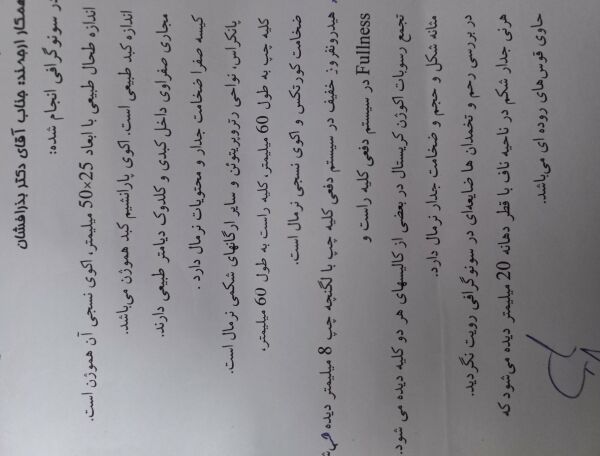 همکار ارجمند: جناب آقای دکتر بذرافشان
در سونوگرافی انجام شده:
اندازه طحال طبیعی با ابعاد 25×50 میلیمتر، اکوی نسجی آن هموژن است.
اندازه کبد طبیعی است. اکوی پارانشیم کبد هموژن می‌باشد.
مجاری صفراوی داخل کبدی و کلدوک دیامتر طبیعی دارند.
کیسه صفرا ضخامت جدار و محتویات نرمال دارد.
پانکراس، نواحی رتروپریتوئن و سایر ارگانهای شکمی نرمال است.
کلیه چپ به طول 60 میلیمتر، کلیه راست به طول 60 میلیمتر،
ضخامت کورتکس و اکوی نسجی نرمال است.
هیدرونفروز خفیف در سیستم دفعی کلیه چپ با لگنچه چپ 8 میلیمتر دیده می‌ش
Fullness در سیستم دفعی کلیه راست و
تجمع رسوبات اکوژن کریستال در بعضی از کالیسهای هر دو کلیه دیده می شود.
مثانه شکل و حجم و ضخامت جدار نرمال دارد.
در بررسی رحم و تخمدان ها ضایعه‌ای در سونوگرافی رویت نگردید.
هرنی جدار شکم در ناحیه ناف با قطر دهانه 20 میلیمتر دیده می‌شود که
حاوی قوس‌های روده ای می‌باشد.